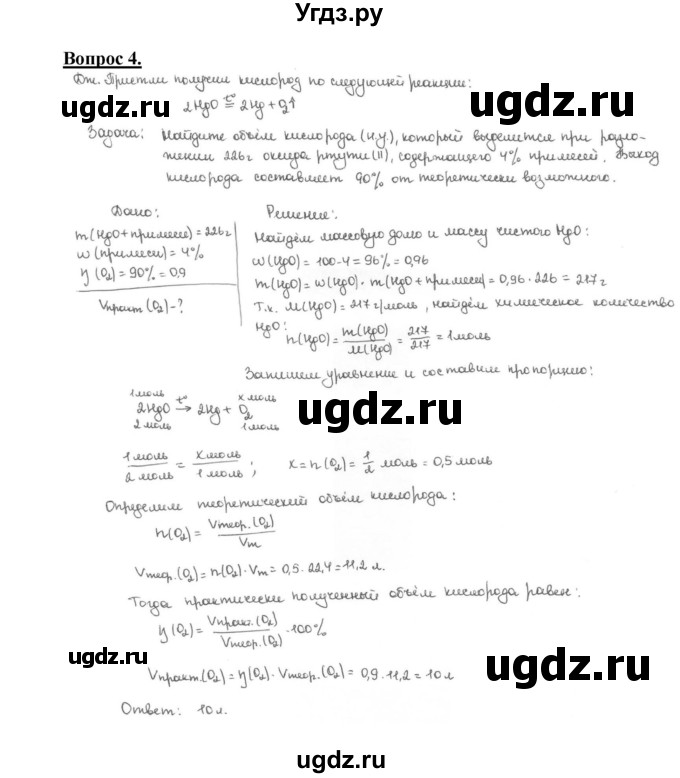 Угдз.ру
Вопрос 4.
Дж. Пристли получил кислород по следующей реакции:
2HgO =t°= 2Hg + O₂↑
ugdz.ru ugdz.ru
Задача: Найдите объём кислорода (н.у.), который выделится при разло-
жении 226г оксида ртути (II), содержащего 4% примесей. Выход
кислорода составляет 90% от теоретически возможного.
Дано:
m(HgO+примеси)=226г
w(примеси)=4%
η(O₂)=90%=0,9
Vпракт(O₂)-?
Решение:
Найдём массовую долю и массу чистого HgO:
w(HgO)=100-4=96%=0,96
m(HgO)=w(HgO)·m(HgO+примеси)=0,96·226=217г
Т.к. M(HgO)=217г/моль, найдём химическое количество
HgO: n(HgO)=m(HgO)/M(HgO)=217/217=1моль
ugdz.ru
Запишем уравнение и составим пропорцию:
1моль t° x моль
2HgO → 2Hg + O₂
2моль 1моль
ugdz.ru
1моль/2моль = xмоль/1моль; x=n(O₂)=1/2 моль=0,5моль
Определим теоретический объём кислорода:
n(O₂)=Vтеор.(O₂)/Vm
ugdz.ru
Vтеор.(O₂)=n(O₂)·Vm=0,5·22,4=11,2л.
Тогда практически полученный объём кислорода равен:
η(O₂)=Vпракт.(O₂)/Vтеор.(O₂)·100%
ugdz.ru ugdz.ru
Vпракт.(O₂)=η(O₂)·Vтеор.(O₂)=0,9·11,2=10л
Ответ: 10л.
ugdz.ru